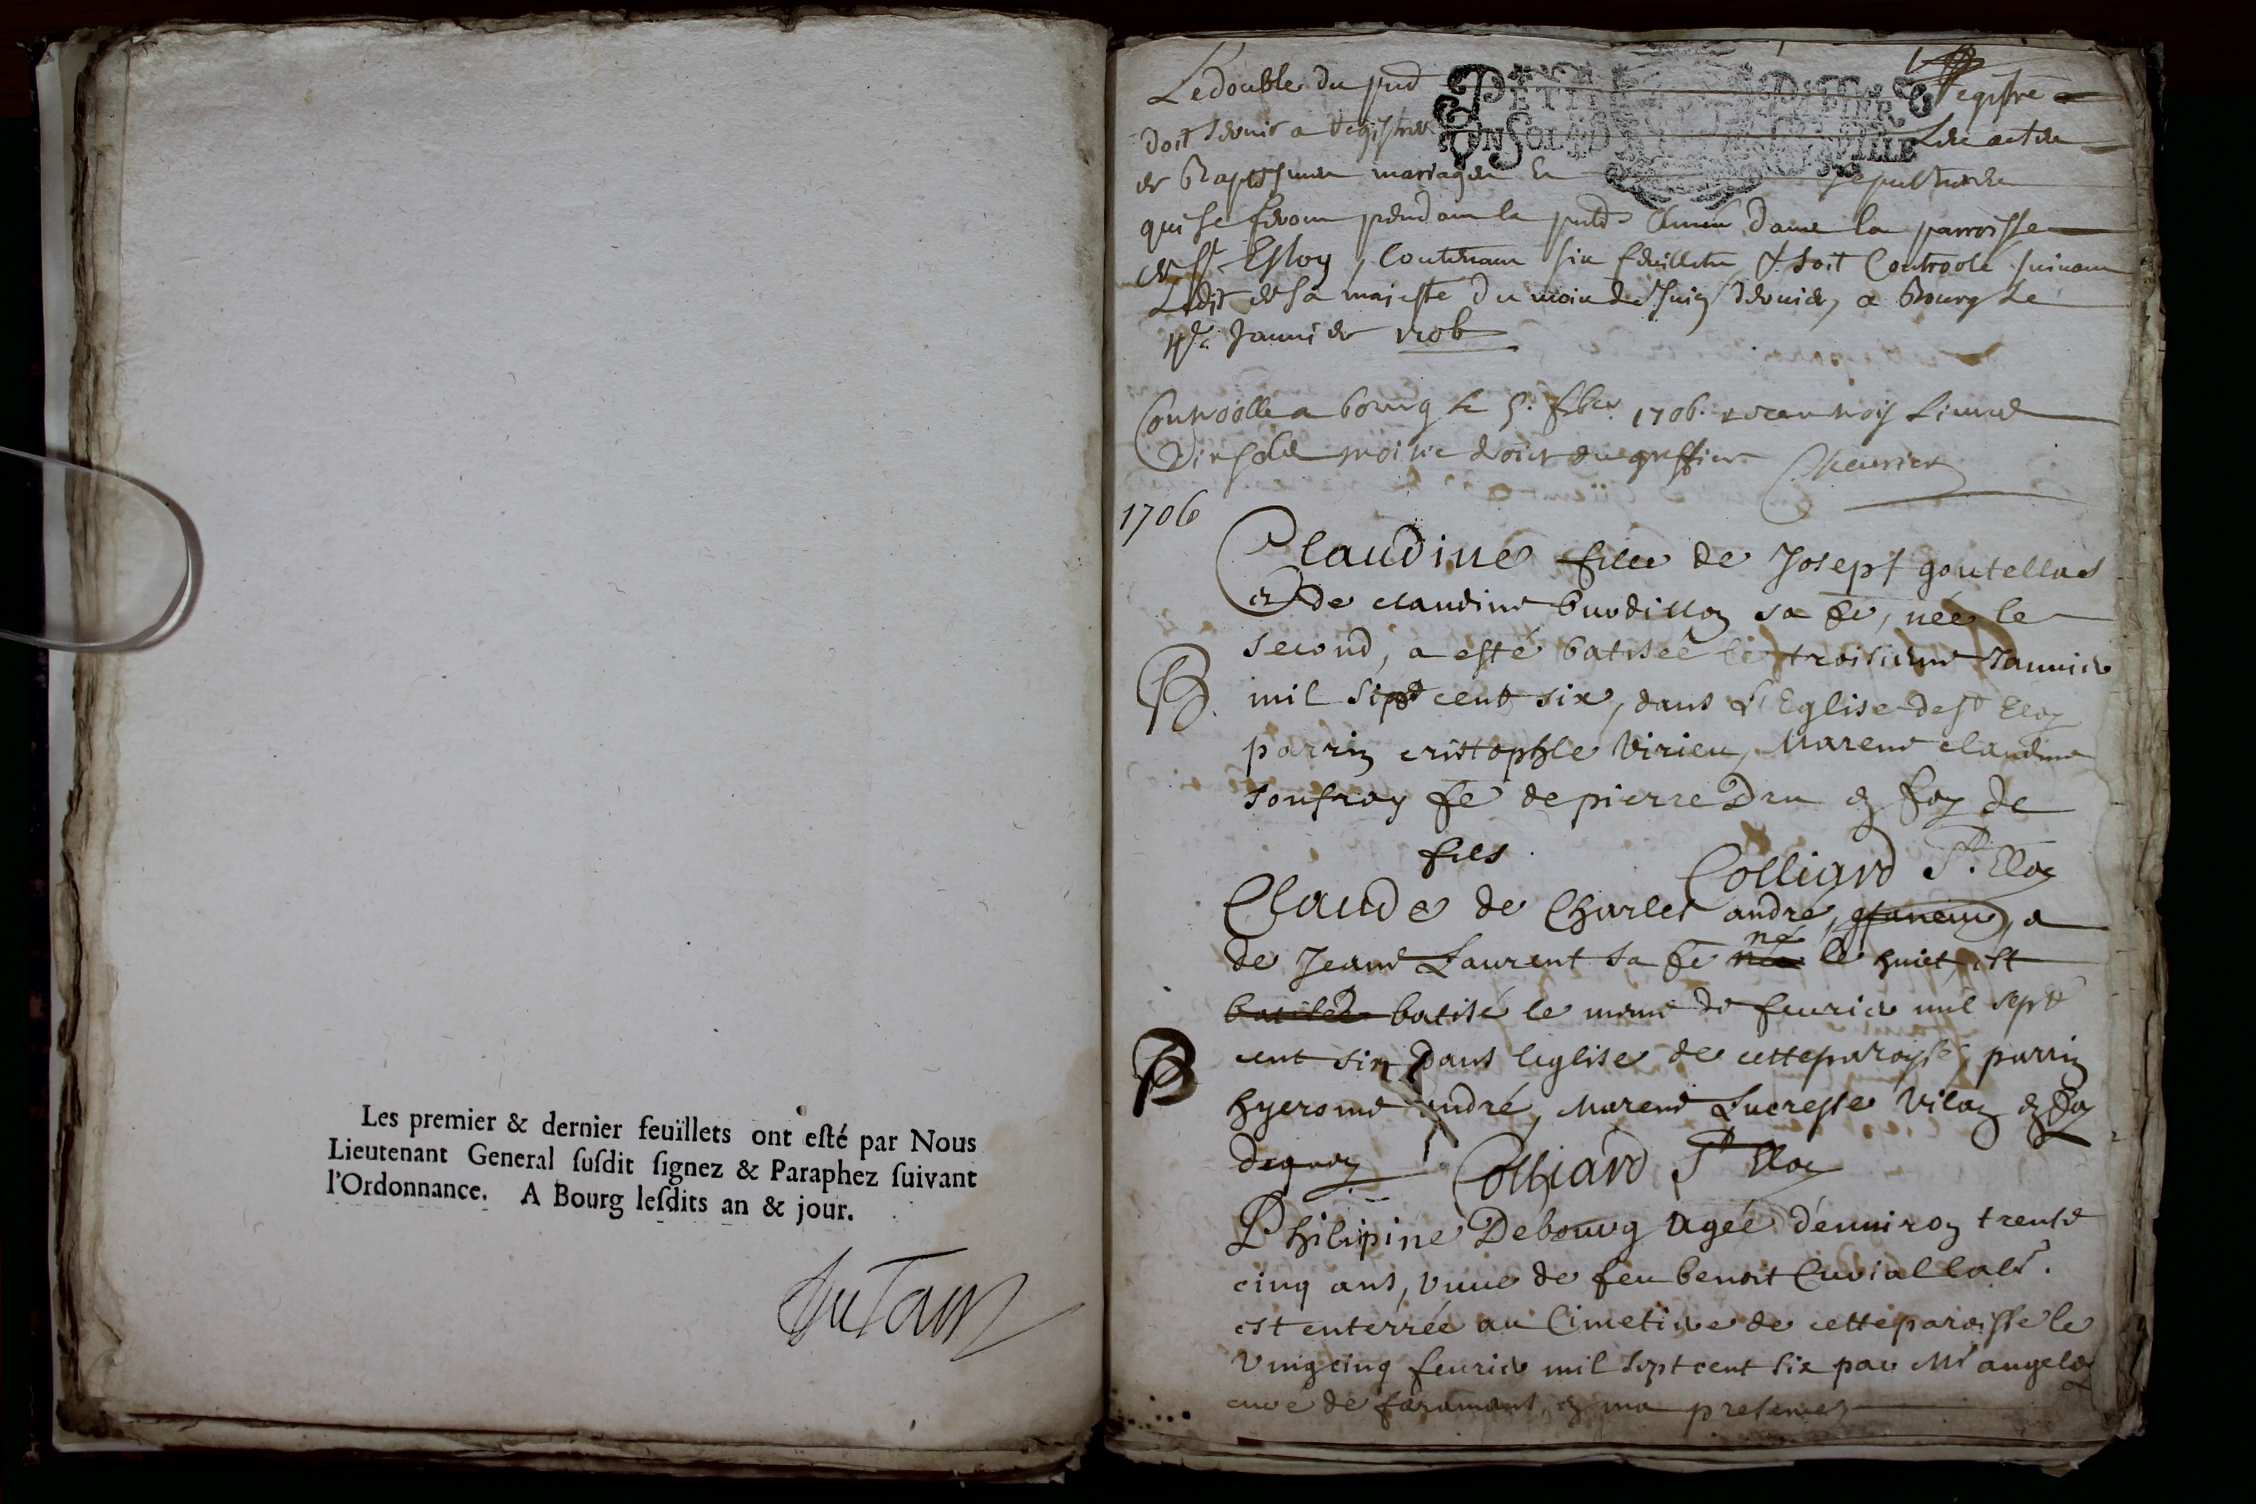 Les premier & dernier feuillets ont esté par Nous
Lieutenant General susdit signez & Paraphez suivant
l'Ordonnance. A Bourg lesdits an & jour.
Le double du pnt Registre
doit servir a registrer Les actes
de Baptesmes mariages et sepultures
qui se feront pendant la pnte Année dans la parroisse
de St Esloy, Contenant six feuillets & soit Controolé suivant
Ledit de sa majesté du mois de Juin dernier, a Bourg Le
Janvier 1706
Controollé a bourg le 5. 1706. trois Livres
sols moitie droits du greffier
1706
Claudine fille de Josepf goutellas
et de claudine sa fe, née le
second, a esté batisée le troisieme Janvier
mil sept cent six, dans l'Eglise de st Eloy
parrin cristophle Virieu, Marene claudine
Joufray fe de pierre Dru en foy de
fils
Colliard St. Eloy
Claude de Charles andré, et
de Jeane Laurent sa fe né le huict, est
B batisé le mesme de feurier mil sept
cent six dans leglise de cette paroysse, parrin
hyerome andré, Marene Lucresse Vilon en foy
dequoy Colliard St Eloy
Philipine Debourg agée d'enuiron trente
cinq ans, vuue de feu benoit
est enterrée au Cimetiere de cette paroisse le
vingcinq feurier mil sept cent six par Mr
curé de faramans, en ma presence